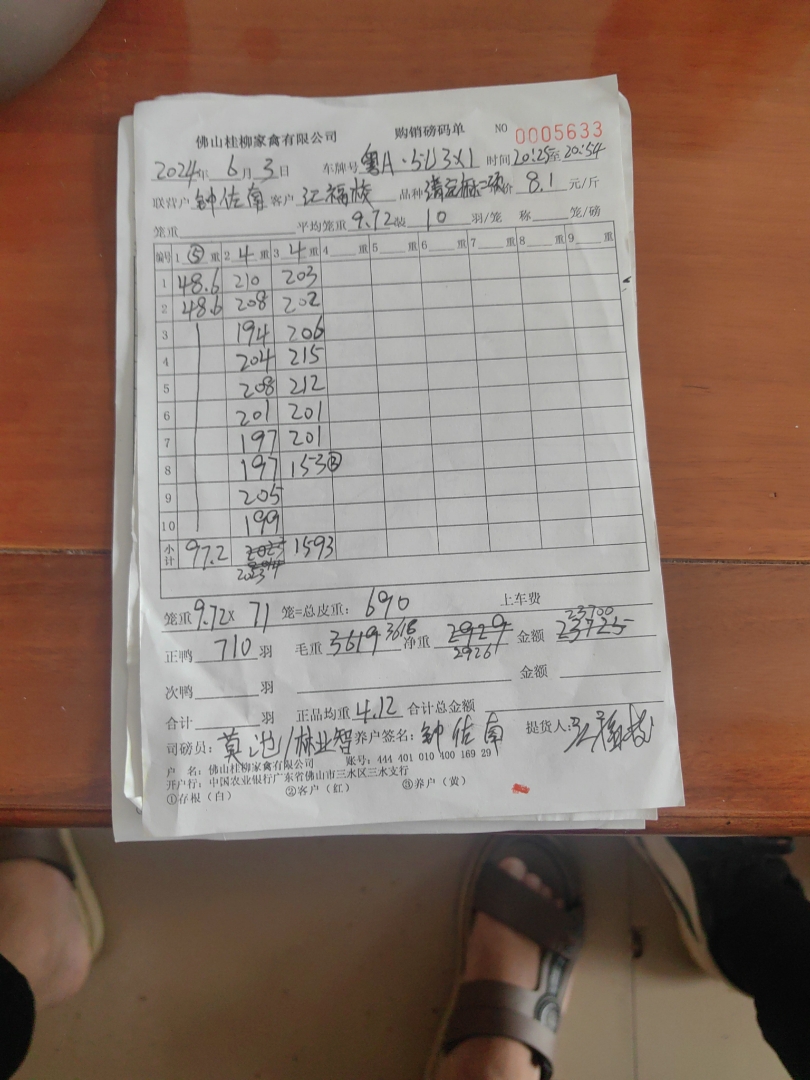 佛山桂柳家禽有限公司 购销磅码单 NO 0005633
2024年 6月 3日 车牌号 粤A·5U3X1 时间 20:25至20:54
联营户 钟佐南 客户 江福枝 品种 价 8.1 元/斤
笼重 平均笼重 9.72 装 10 羽/笼 称 笼/磅
编号 1 ⑤ 重 2 4 重 3 4 重 4 重 5 重 6 重 7 重 8 重 9 重
1 48.6 210 203
2 48.6 208 202
3 194 206
4 204 215
5 208 212
6 201 201
7 197 201
8 197 153③
9 205
10 199
小计 97.2 2023 1593
笼重 9.72× 71 笼=总皮重: 690 上车费
23700
正鸭 710 羽 毛重 3619 3616 净重 2929 金额 23725
2926
金额
次鸭 羽
合计 羽 正品均重 4.12 合计总金额
司磅员: 莫池/林业智 养户签名: 钟佐南 提货人: 江福枝
户 名: 佛山桂柳家禽有限公司 账号: 444 401 010 400 169 29
开户行: 中国农业银行广东省佛山市三水区三水支行
①存根(白) ②客户(红) ③养户(黄)